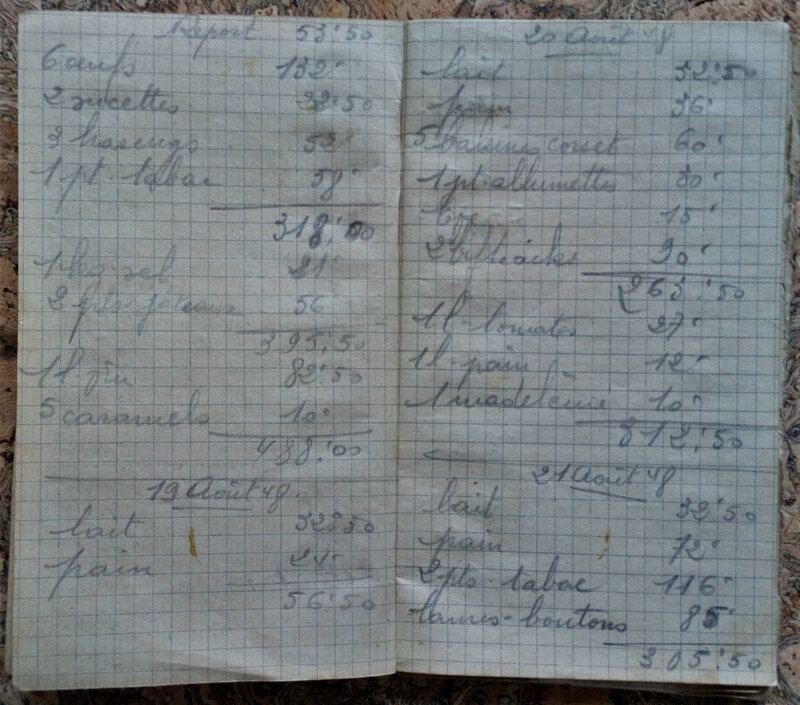 Report 53:50
6 œufs 132:
2 sucettes 22:50
3 harengs
1 pt. tabac 58:
318:00
1 kg sel 21:
2 pts. gâteaux 56
395:50
1 l. vin 82:50
5 caramels 10:
488:00
19 Août 48.
lait 32:50
pain 24:
56:50
20 Août 48
lait 32:50
pain 36:
5 baleines corset 60:
1 pt. allumettes 30:
15:
2 biftecks 90:
263:50
1 l. tomates 27:
1 l. pain 12:
1 madeleine 10:
312:50
21 Août 48
lait 32:50
pain 72:
2 pts. tabac 116:
boutons 85:
305:50